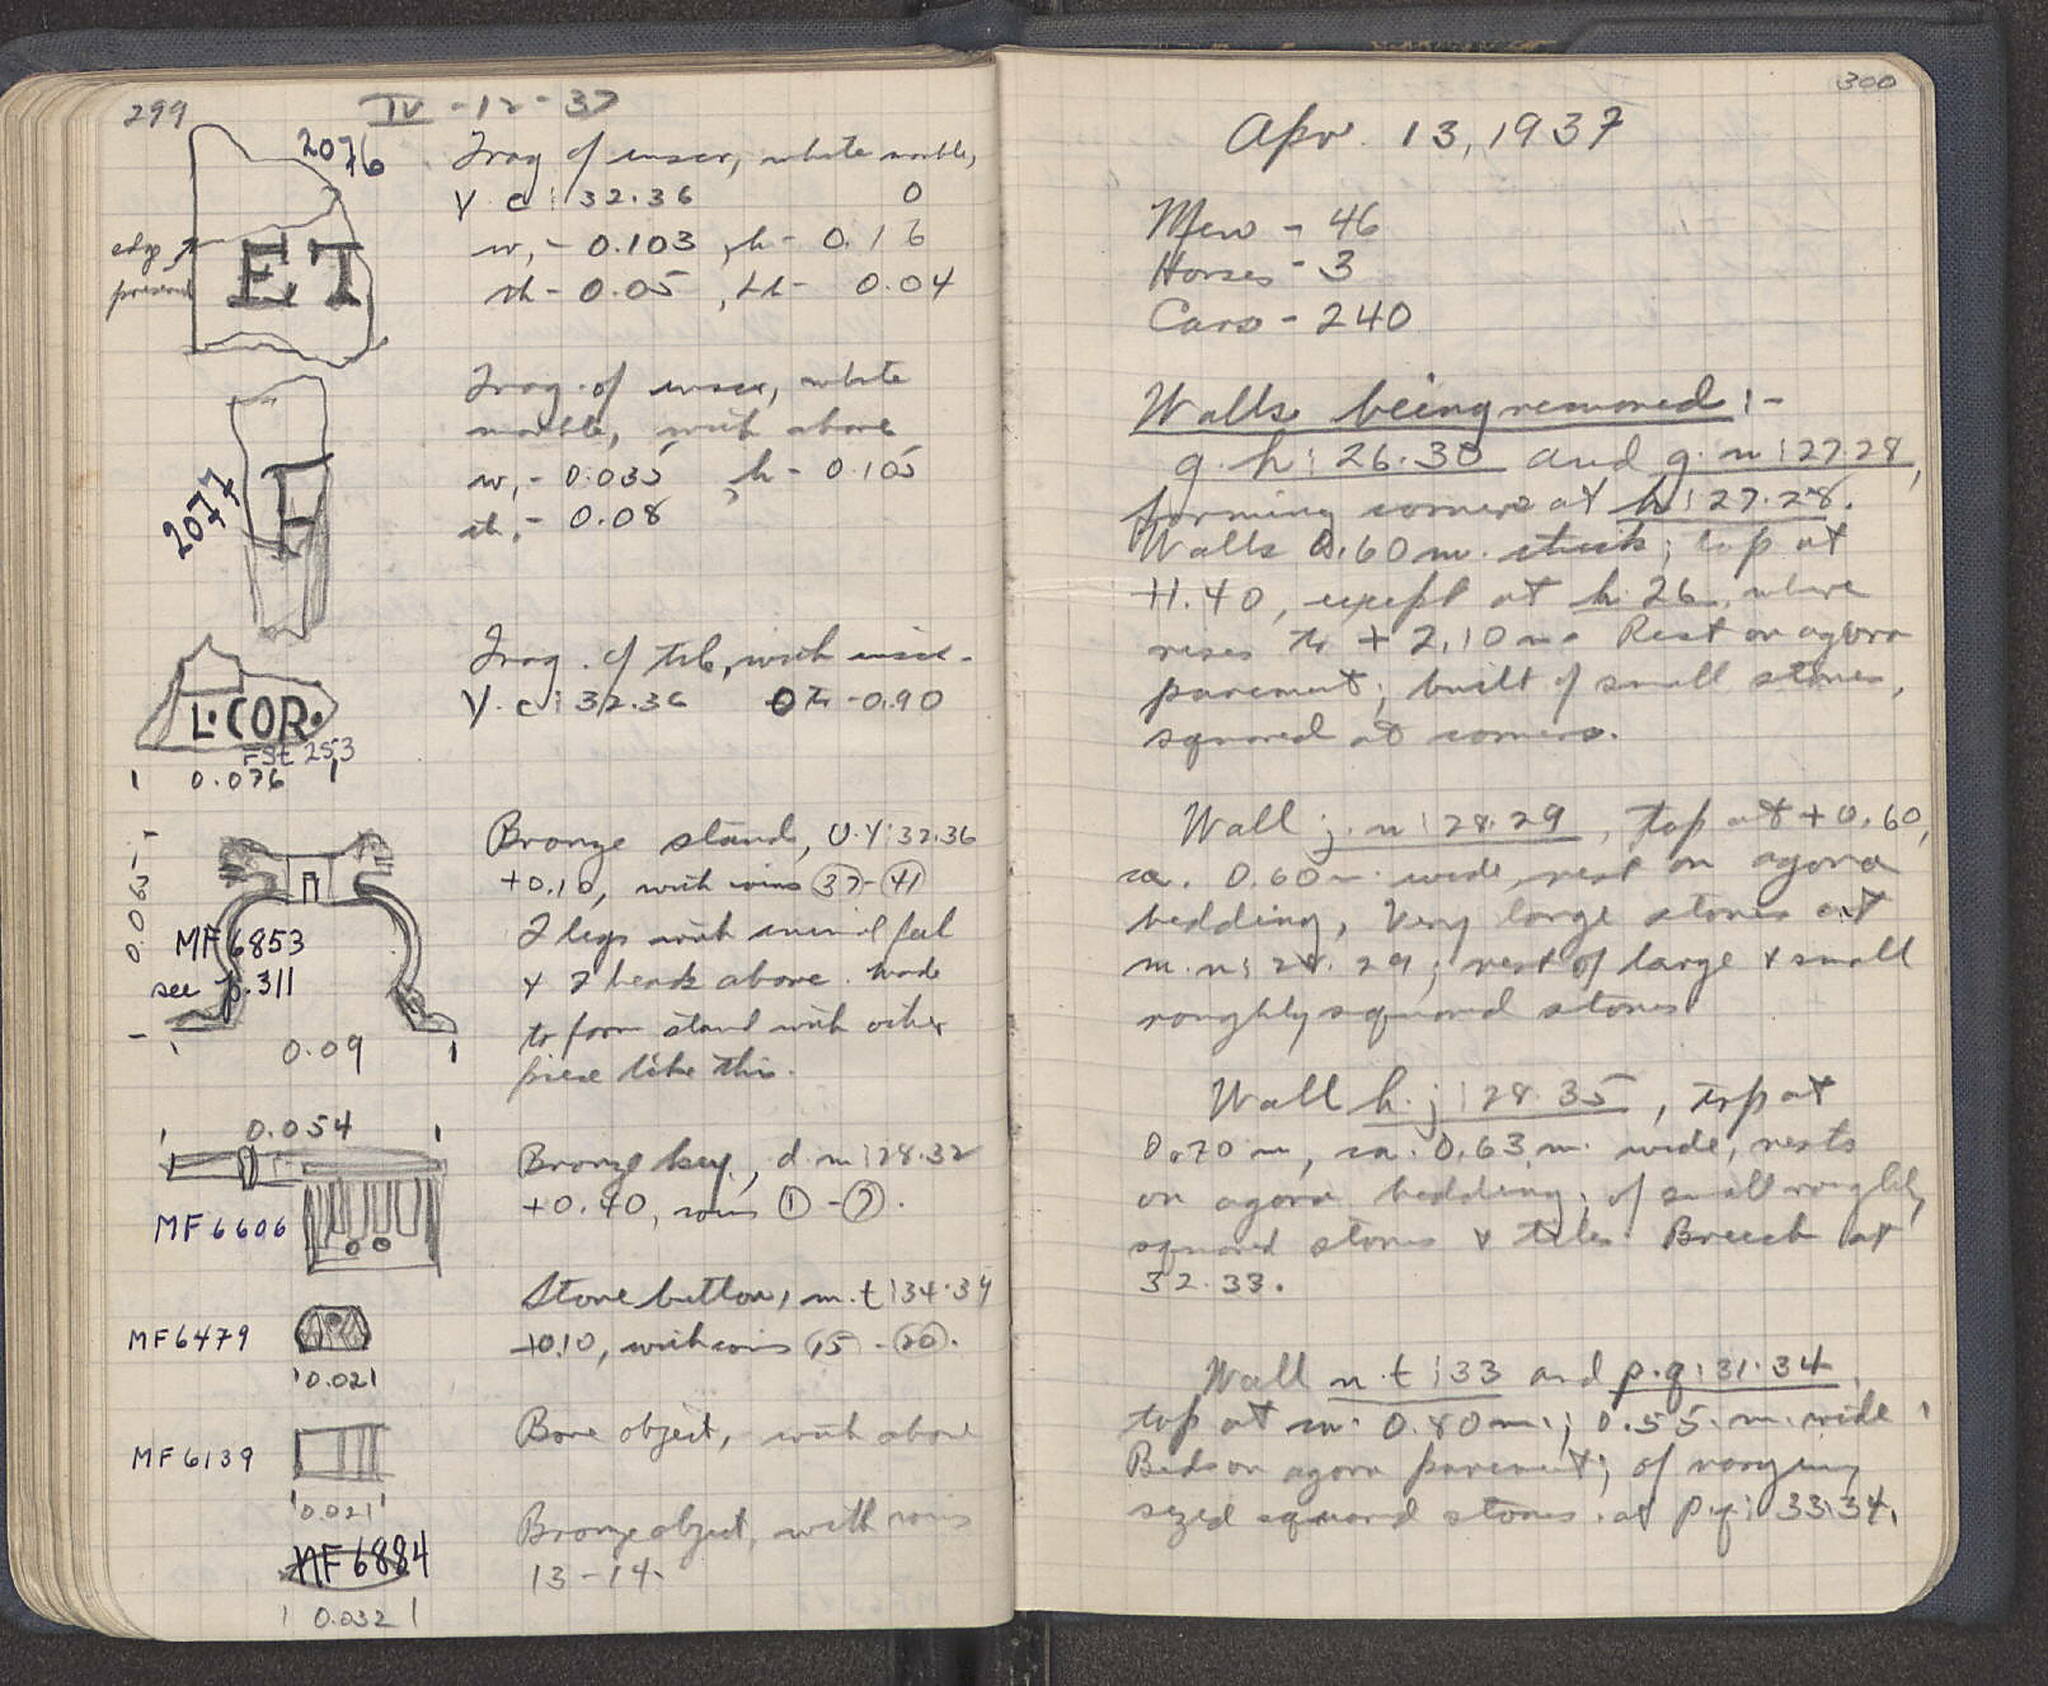 299
IV - 12 - 37
2076
Frag of inscr, white marble,
v. c : 32.36 0
edge
preserved
ET
w, - 0.103, h - 0.16
th - 0.05, Lh - 0.04
Frag. of inscr, white
marble, with above
2077
w, - 0.035, h - 0.105
th, - 0.08
Frag. of tile, with inscr.
v. c : 32.36 0 to -0.90
L·COR·
FSt 253
0.076
Bronze stand, v.y:32.36
+0.10, with coins 37-41
0.065
2 legs with animal feet
MF 6853
see p.311
+ 2 heads above. Made
to form stand with other
piece like this.
0.09
0.054
Bronze key, d.m:28.32
+0.40, coins 1 - 7.
MF 6606
Stone button, m.t:34.34
+0.10, with coins 15 - 20.
MF6479
0.021
Bone object, with above
MF 6139
0.021
Bronze object, with coins
13-14.
MF6884
0.032
300
Apr. 13, 1937
Men - 46
Horses - 3
Cars - 240
Walls being removed :-
g.h:26.30 and g.n:27.28,
forming corners at h:27.28.
Walls 0.60 m. thick; top at
+1.40, except at h.26, where
rises to +2.10 m. Rest on agora
pavement; built of small stones,
squared at corners.
Wall j.n:28.29, top at +0.60,
ca. 0.60 m. wide, rest on agora
bedding, Very large stones at
m.n:28.29; rest of large + small
roughly squared stones
Wall h.j:28.35, top at
0.70 m, ca. 0.63 m. wide, rests
on agora bedding; of small roughly
squared stones + tiles. Breech at
32.33.
Wall n.t:33 and p.q:31.34,
top at ca. 0.80 m.; 0.55 m. wide.
Beds on agora pavement; of varying
sized squared stones. at p.q:33.34.